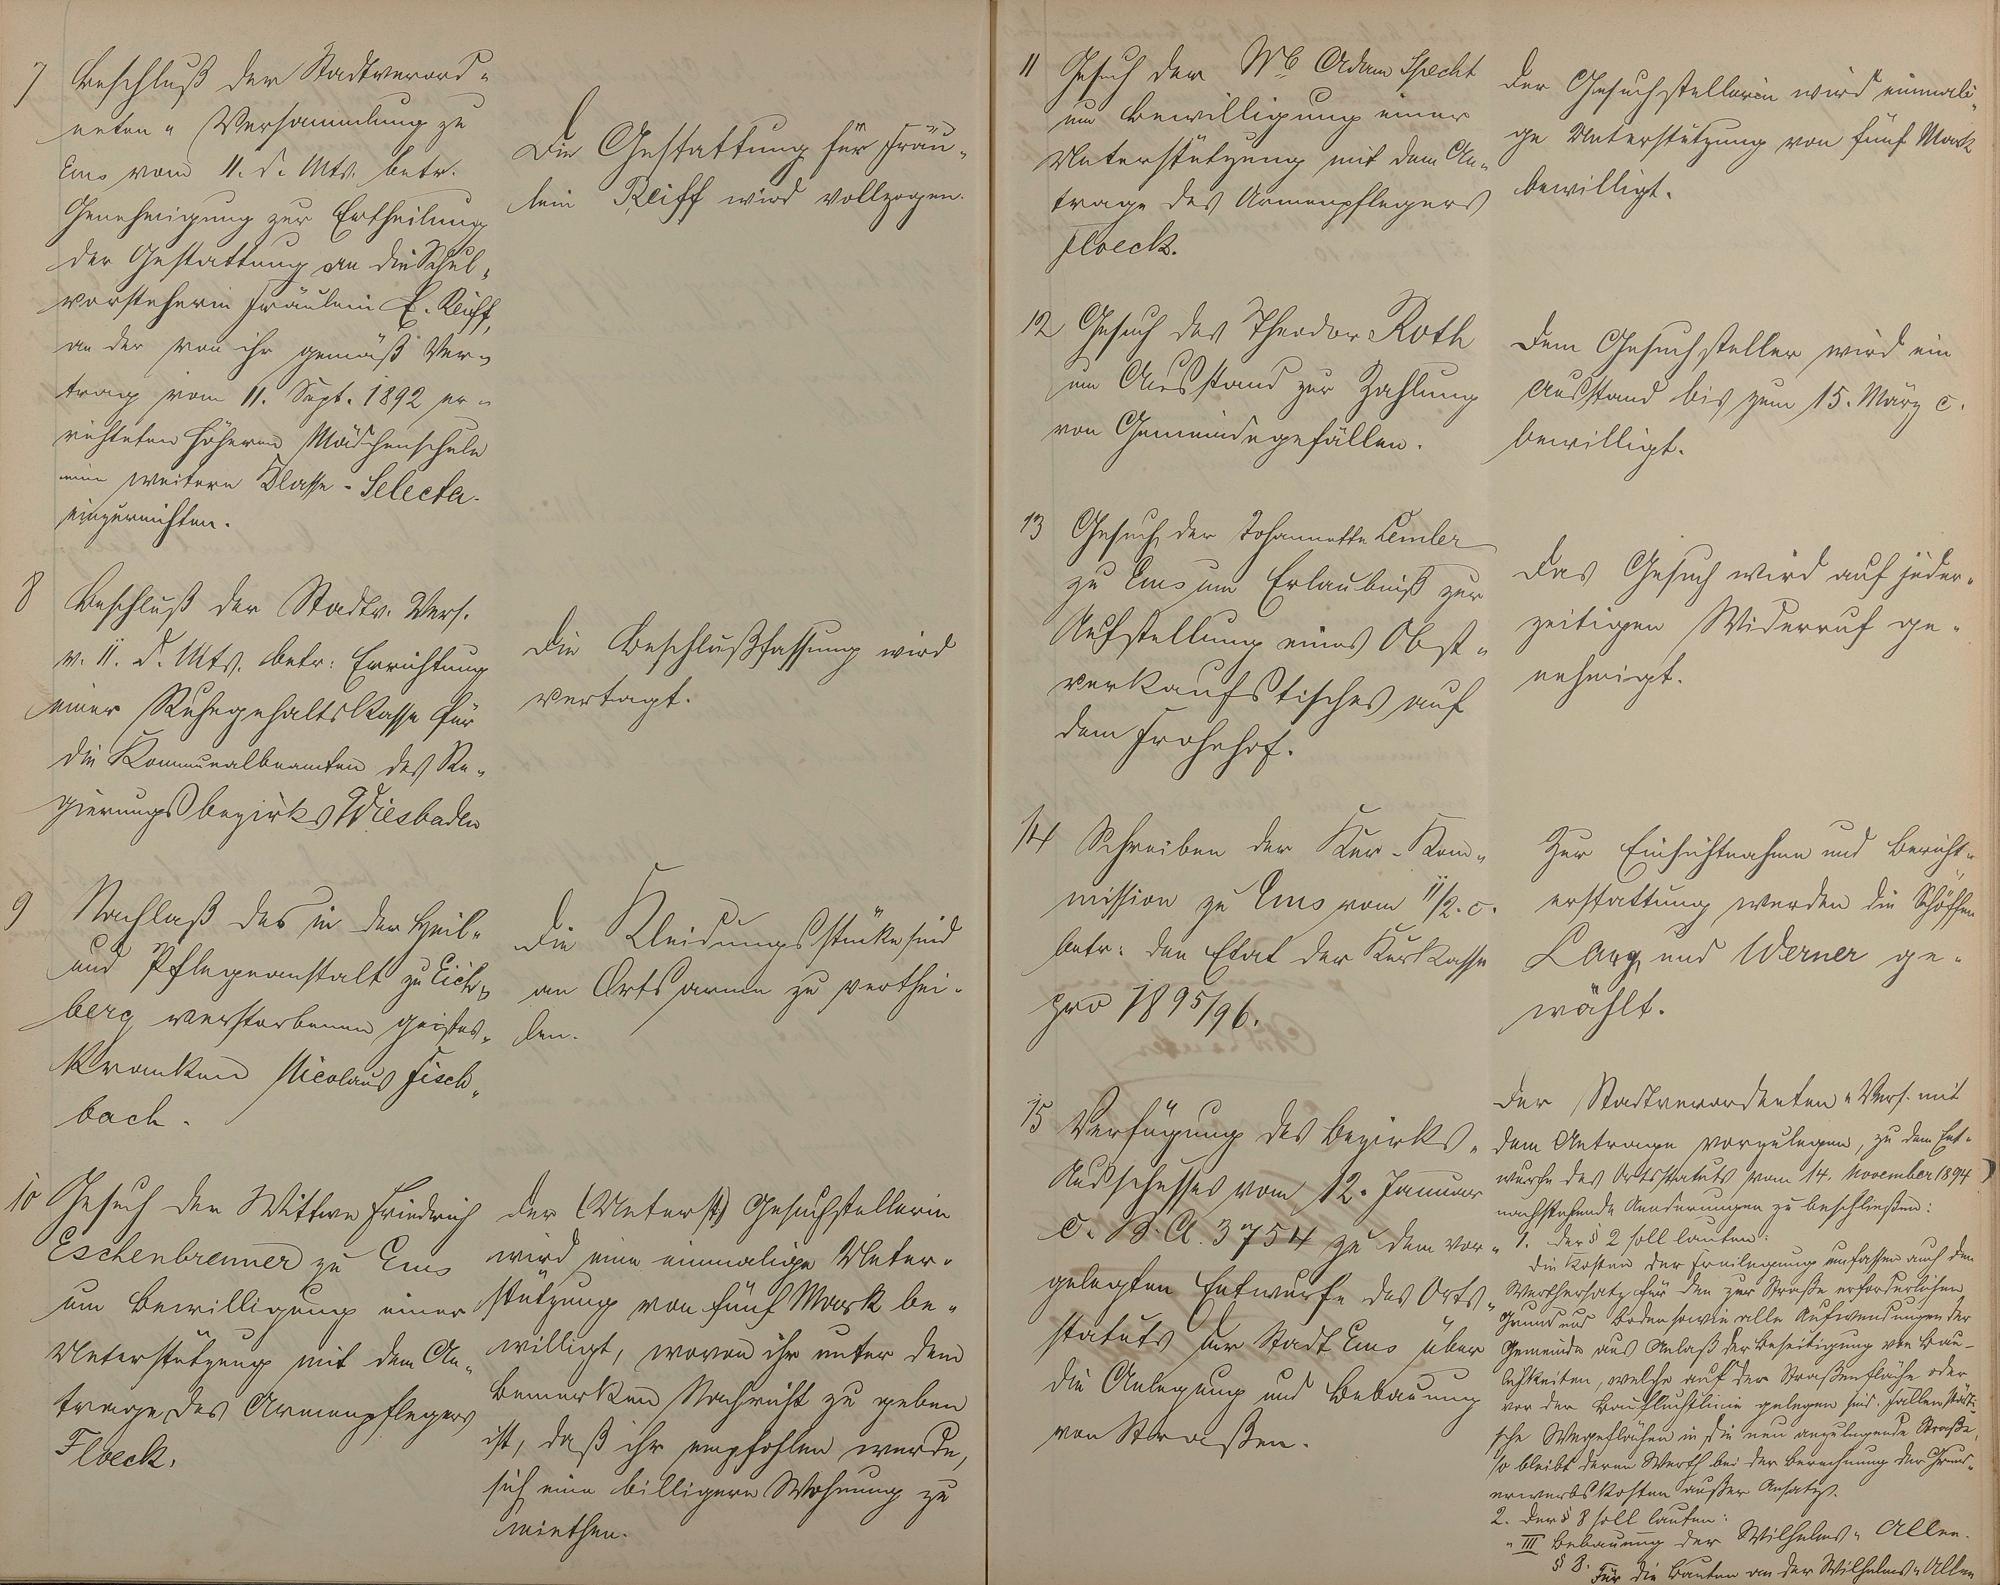 7 Beschluß der Stadtverord-
neten- Versammlung zu
Ems vom 11. d. Mts. betr.
Genehmigung zur Ertheilung
der Gestattung an die Schul-
vorsteherin Fräulein E. Reiff,
an der von ihr gemäß Ver-
trag vom 11. Sept. 1892 er-
richteten höheren Mädchenschule
eine weitere Klasse - Selecta -
einzurichten.
Die Gestattung für Fräu-
lein Reiff wird vollzogen.
8 Beschluß der Stadtv. Vers.
v. 11. d. Mts. betr. Errichtung
einer Ruhegehaltskasse für
die Kommunalbeamten des Re-
gierungsbezirks Wiesbaden
Die Beschlußfassung wird
vertagt.
9 Nachlaß des in der Heil-
und Pflegeanstalt zu Eich-
berg verstorbenen geistes-
kranken Nicolaus Fisch-
bach.
Die Kleidungsstücke sind
an Ortsarme zu verthei-
len.
10 Gesuch der Wittwe Friedrich
Eschenbrenner zu Ems
um Bewilligung einer
Unterstützung mit dem An-
trage des Armenpflegers
Floeck.
Der (Unterst) Gesuchstellerin
wird eine einmalige Unter-
stützung von fünf Mark be-
willigt, wovon ihr unter dem
Bemerken Nachricht zu geben
ist, daß ihr empfohlen werde,
sich eine billigere Wohnung zu
miethen.
11 Gesuch der Ww Adam Specht
um Bewilligung einer
Unterstützung mit dem An-
trage des Armenpflegers
Floeck.
Der Gesuchstellerin wird einmali-
ge Unterstützung von fünf Mark
bewilligt.
12 Gesuch des Theodor Roth
um Ausstand zur Zahlung
von Gemeindegefällen.
Dem Gesuchsteller wird ein
Ausstand bis zum 15. März c.
bewilligt.
13 Gesuch der Johannette Lemler
zu Ems um Erlaubniß zur
Aufstellung eines Obst-
verkaufstisches auf
dem Frohnhof.
Das Gesuch wird auf jeder-
zeitigen Widerruf ge-
nehmigt.
14 Schreiben der Kur-Kom-
mission zu Ems vom 11/2. c.
betr. den Etat der Kurkasse
pro 1895/96.
Zur Einsichtnahme und Bericht-
erstattung werden die Schöffen
Lang und Werner ge-
wählt.
15 Verfügung des Bezirks-
Ausschusses vom 12. Januar
c. B. A. 3754 zu dem vor-
gelegten Entwurfe des Orts-
statuts der Stadt Ems über
die Anlegung und Bebauung
von Straßen.
Der Stadtverordneten-Vers. mit
dem Antrage vorzulegen, zu dem Ent-
wurfe des Ortsstatuts vom 14. November 1894
nachstehende Aenderungen zu beschließen:
1. Der § 2 soll lauten:
Die Kosten der Freilegung umfassen auch den
Werthersatz für den zur Straße erforderlichen
Grund und Boden sowie alle Aufwendungen der
Gemeinde aus Anlaß der Beseitigung von Bau-
lichkeiten, welche auf der Straßenfläche oder
vor der Baufluchtlinie gelegen sind. Fallen städti-
sche Wegeflächen in die neu anzulegende Straße,
so bleibt deren Werth bei der Berechnung der Grund-
erwerbskosten außer Ansatz.
2. Der § 8 soll lauten:
"III Bebauung der Wilhelms-Allee.
§ 8. Für die Bauten an der Wilhelms-Allee